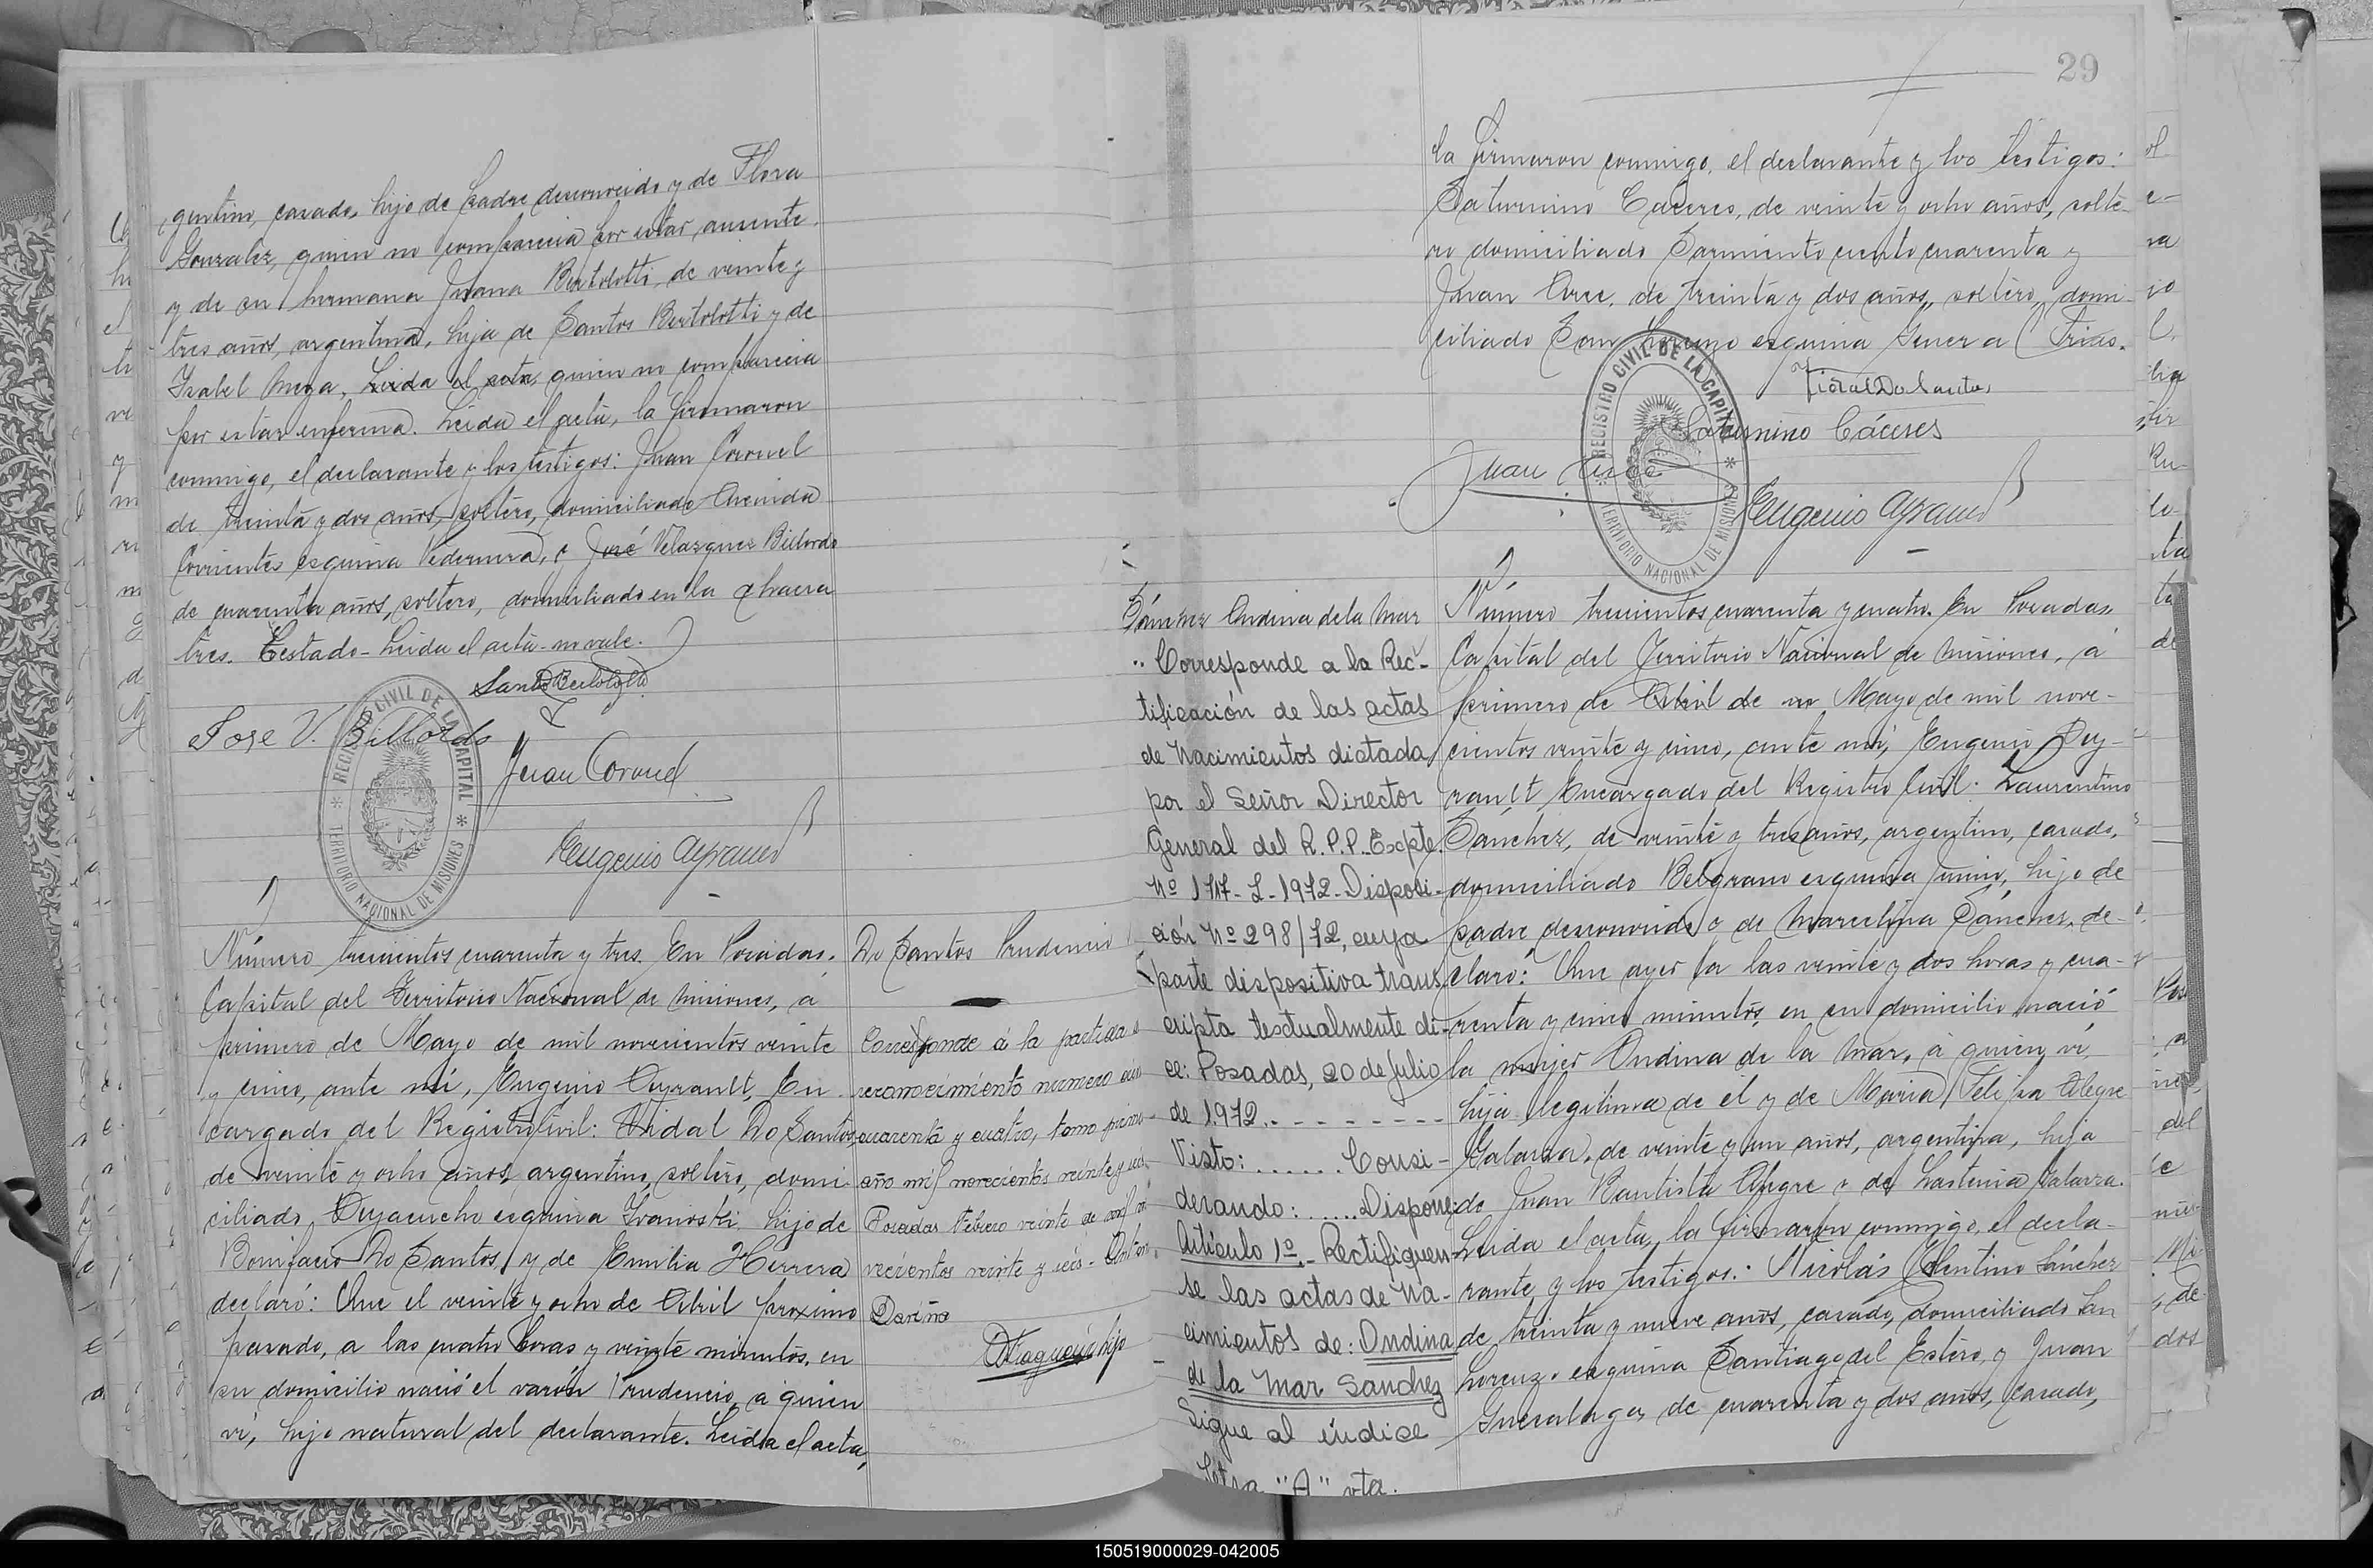 gentino, casado, hijo de padre desconocido y de Flora
Gonzalez, quien no comparecia por estar ausente
y de su hermana Juana Bertolotti, de veinte y
tres años, argentina, hija de Santos Bertolotti y de
Isabel Meza, Leida el acta, quien no comparecia
por estar enferma. Leida el acta, la firmaron
conmigo, el declarante y los testigos: Juan Coronel
de treinta y dos años, soltero, domiciliado Avenida
Corrientes esquina Pedernera, y José Velazquez Billordo
de cuarenta años, soltero, domiciliado en la chacra
tres. Testado - Leida el acta - no vale.
Santo Bertolotti
Jose V. Billordo
Juan Coronel
REGISTRO CIVIL DE LA CAPITAL
TERRITORIO NACIONAL DE MISIONES
Número trescientos cuarenta y tres. En Posadas,
Capital del Territorio Nacional de Misiones, a
primero de Mayo de mil novecientos veinte
y cinco, ante mí, Eugenio Ayrault, En
cargado del Registro Civil: Vidal Do Santos,
de veinte y ocho años, argentino, soltero, domi
ciliado Ayacucho esquina Ivanoski, hijo de
Bonifacio Do Santos, y de Emilia Herrera
declaró: Que el veinte y ocho de Abril proximo
pasado, a las cuatro horas y veinte minutos, en
su domicilio nació el varón Prudencio, a quien
vi, hijo natural del declarante. Leida el acta,
Do Santos Prudencio
Corresponde á la partida d
reconocimiento numero
cuarenta y cuatro, tomo prime
año mil novecientos veinte y seis.
Posadas Febrero veinte de mil no
vecientos veinte y seis -
29
la firmaron conmigo, el declarante y los testigos:
Saturnino Cáceres, de veinte y ocho años, solte-
ro domiciliado Sarmiento ciento cuarenta y
Juan Arce, de treinta y dos años, soltero, domi-
ciliado San esquina General Frias.
Vidal Do Santos
Saturnino Cáceres
Juan Arce
REGISTRO CIVIL DE LA CAPITAL
TERRITORIO NACIONAL DE MISIONES
Sánchez Ondina de la Mar
Corresponde a la Rec-
tificación de las actas
de Nacimientos dictada
por el Señor Director
General del R.P.P. Expte.
Nº 1717-L-1972-Disposi-
ción Nº 298/72, cuya
parte dispositiva trans
cripta textualmente di-
ce: Posadas, 20 de Julio
de 1972.- - - - - - - - -
Visto: ...... Consi-
derando: ..... Dispone:
Artículo 1º.- Rectifíquen-
se las actas de Na-
cimientos de: Ondina
de la Mar Sanchez
Sigue al índice
Letra "A" vta.
Número trescientos cuarenta y cuatro. En Posadas,
Capital del Territorio Nacional de Misiones, a
primero de Abril de m Mayo de mil nove-
cientos veinte y cinco, ante mí, Eugenio Ay-
rault Encargado del Registro Civil: Laurentino
Sánchez, de veinte y tres años, argentino, casado,
domiciliado Belgrano esquina Junin, hijo de
padre desconocido y de Marcelina Sánchez, de-
claró: Que ayer a las veinte y dos horas y cua-
renta y cinco minutos, en su domicilio nació
la mujer Ondina de la Mar, a quien vi,
hija legitima de él y de Maria Felipa Alegre
Galarza, de veinte y un años, argentina, hija
de Juan Bautista Alegre y de Lastenia Galarza.
Leida el acta, la firmaron conmigo, el decla-
rante y los testigos: Nicolás Tolentino Sánchez
de treinta y nueve años, casado, domiciliado San
Lorenzo esquina Santiago del Estero, y Juan
de cuarenta y dos años, casado,
150519000029-042005